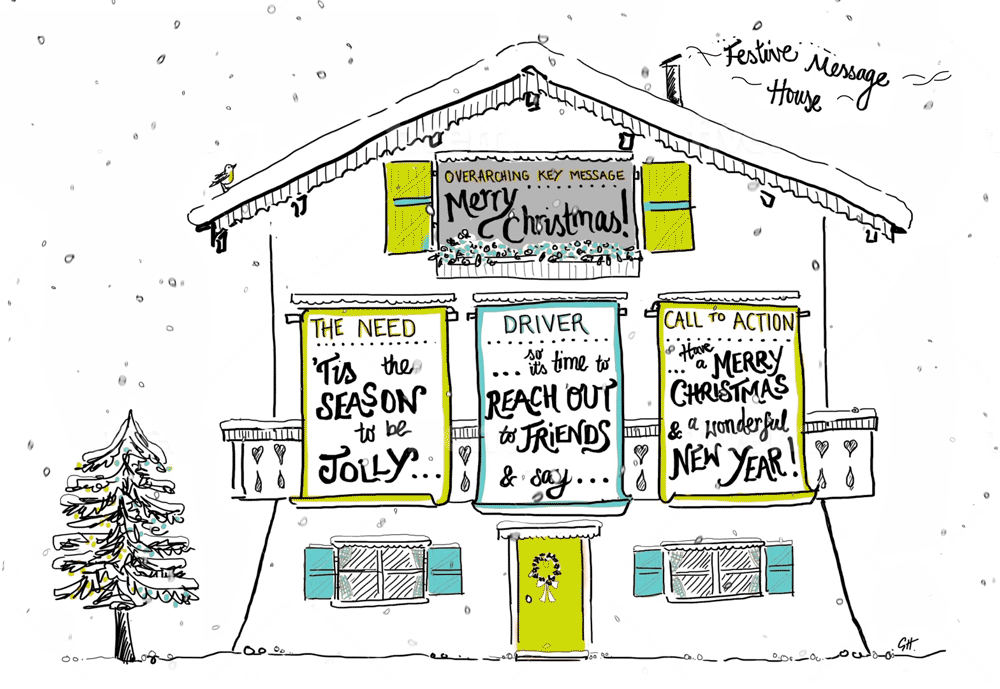 Festive Message
House
OVERARCHING KEY MESSAGE
Merry
Christmas!
THE NEED
'Tis the
SEASON
to be
JOLLY...
DRIVER
... so it's time to
REACH OUT
to FRIENDS
& say...
CALL TO ACTION
... Have a MERRY
CHRISTMAS
& a wonderful
NEW YEAR!
GH.